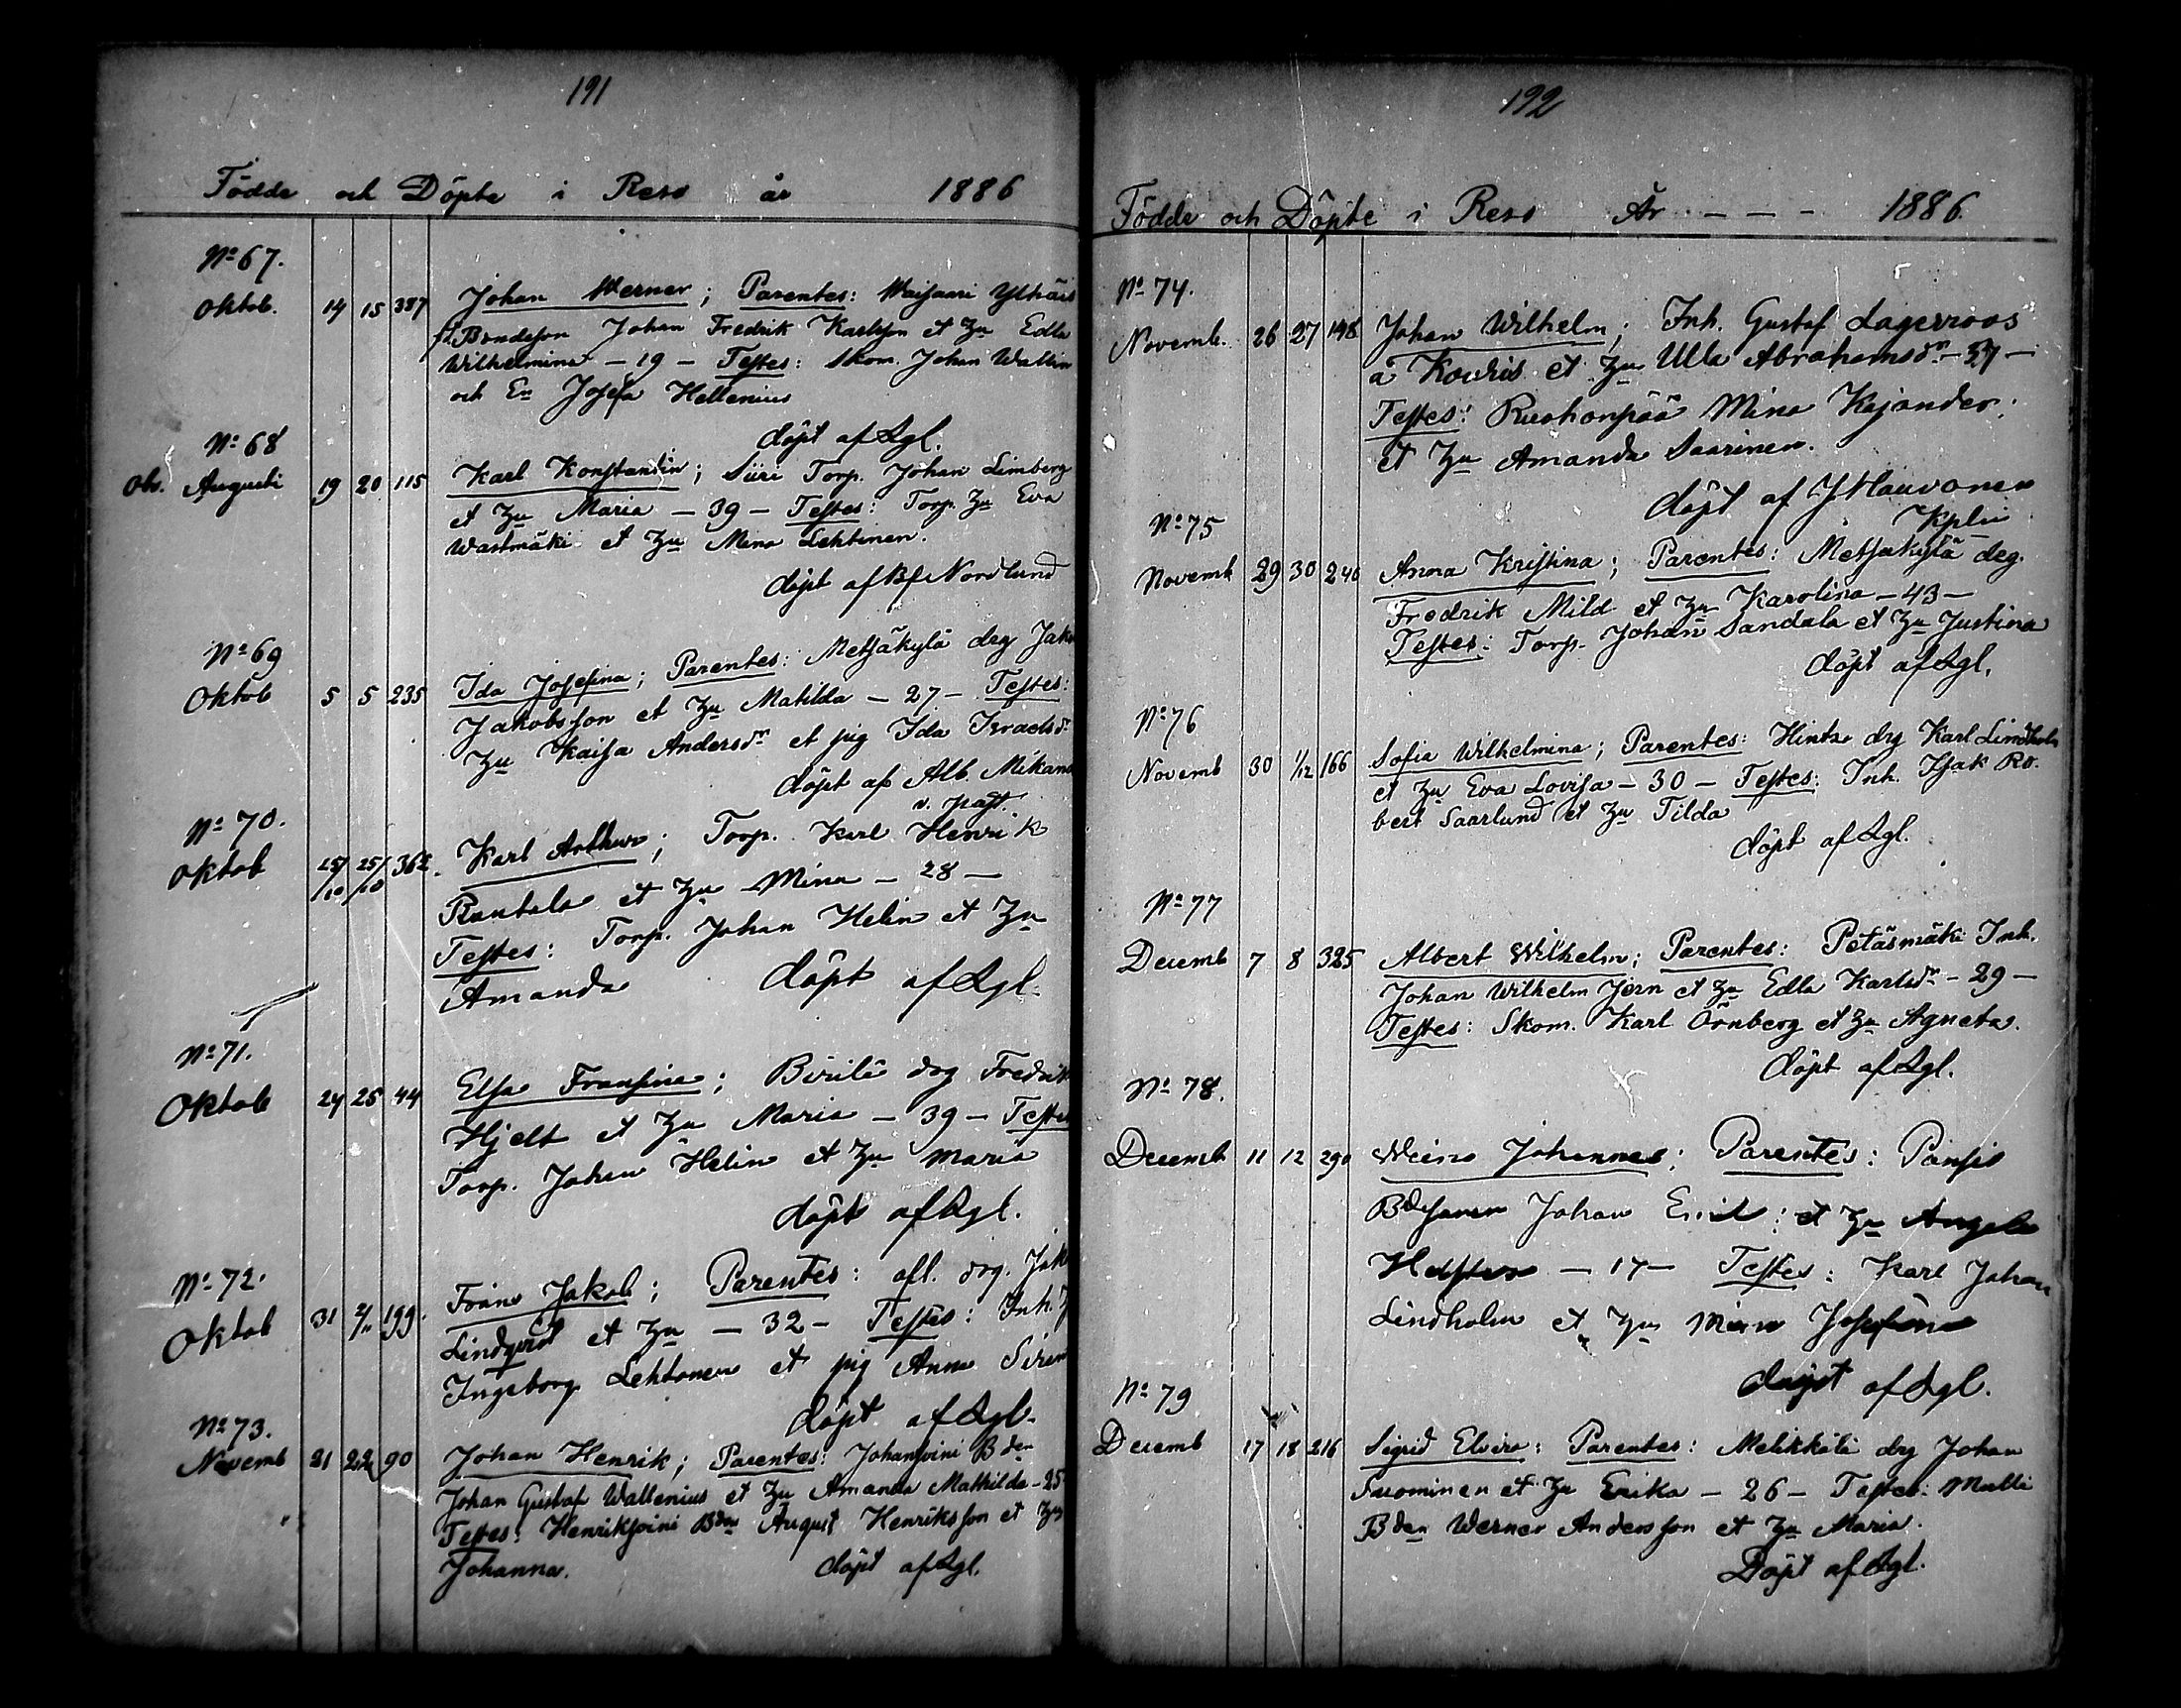 191
Födde och Döpte i Reso år 1886
No 67.
Oktob. 14 15 387 Johan Werner; Parentes: Waisaari Yltäis
fl. Bondeson Johan Fredrik Karlsson et Hu Edla
Wilhelmina - 19 - Testes: Skom. Johan Wallin
och En Josefa Hellenius
döpt af Lgl.
No 68
Obs. Augusti 19 20 115 Karl Konstantin; Siiri Torp. Johan Limberg
et Hu Maria - 39 - Testes: Torp. Hu Eva
Wastmäki et Hu Mina Lehtinen.
döpt af Bf Nordlund
No 69
Oktob 5 5 235 Ida Josefina; Parentes: Metsäkylä drg Jakob
Jakobsson et Hu Matilda - 27 - Testes:
Hu Kaisa Andersdr et pig Ida Israelsdr
döpt af Alb. Mikand
v. past.
No 70.
Oktob 25/10 25/10 362. Karl Arthur; Torp. Karl Henrik
Rantala et Hu Mina - 28 -
Testes: Torp. Johan Helin et Hu
Amanda döpt af Lgl.
No 71.
Oktob 24 25 44 Elsa Fransina; Birilä drg Fredrik
Hjelt et Hu Maria - 39 - Testes
Torp. Johan Helin et Hu Maria
döpt af Lgl.
No 72.
Oktob 31 2/11 199. Frans Jakob; Parentes: afl. drg. Jak
Lindqvist et Hu - 32 - Testes: Inh. J
Ingeborg Lehtonen et pig Anna Siren
döpt af Lgl.
No 73.
Novemb 21 22 90 Johan Henrik; Parentes: Johansoini Bden
Johan Gustaf Wallenius et Hu Amanda Mathilda - 25
Testes: Henriksoini Bden August Henriksson et Hu
Johanna. döpt af Lgl.
192
Födde och Döpte i Reso År - - - 1886.
No 74.
Novemb. 26 27 148 Johan Wilhelm; Inh. Gustaf Lagerroos
å Kouris et Hu Ulla Abrahamsdr - 37 -
Testes: Ruohonpää Mina Kajander;
et Hu Amanda Saarinen.
döpt af J Hauvonen
Kplin
No 75
Novemb 29 30 246 Anna Kristina; Parentes: Metsäkylä drg.
Fredrik Mild et Hu Karolina - 43 -
Testes: Torp. Johan Sandala et Hu Justina
döpt af Lgl.
No 76
Novemb 30 1/12 166 Sofia Wilhelmina; Parentes: Hintsa drg Karl Lindholm
et Hu Eva Lovisa - 30 - Testes: Inh. Isak Ro-
bert Saarlund et Hu Tilda
döpt af Lgl.
No 77
Decemb 7 8 325 Albert Wilhelm; Parentes: Petäsmäki Inh.
Johan Wilhelm Jern et Hu Edla Karlsdr - 29 -
Testes: Skom. Karl Örnberg et Hu Agneta.
döpt af Lgl.
No 78.
Decemb 11 12 290 Weino Johannes; Parentes: Pansio
Bdsonen Johan Emil; et Hu Angela
- 17 - Testes: Karl Johan
Lindholm et Hu Mina Josefina
döpt af Lgl.
No 79
Decemb 17 18 216 Sigrid Elvira: Parentes: Melikkälä drg Johan
Suominen et Hu Erika - 26 - Testes: Mulli
Bden Werner Andersson et Hu Maria.
Döpt af Lgl.